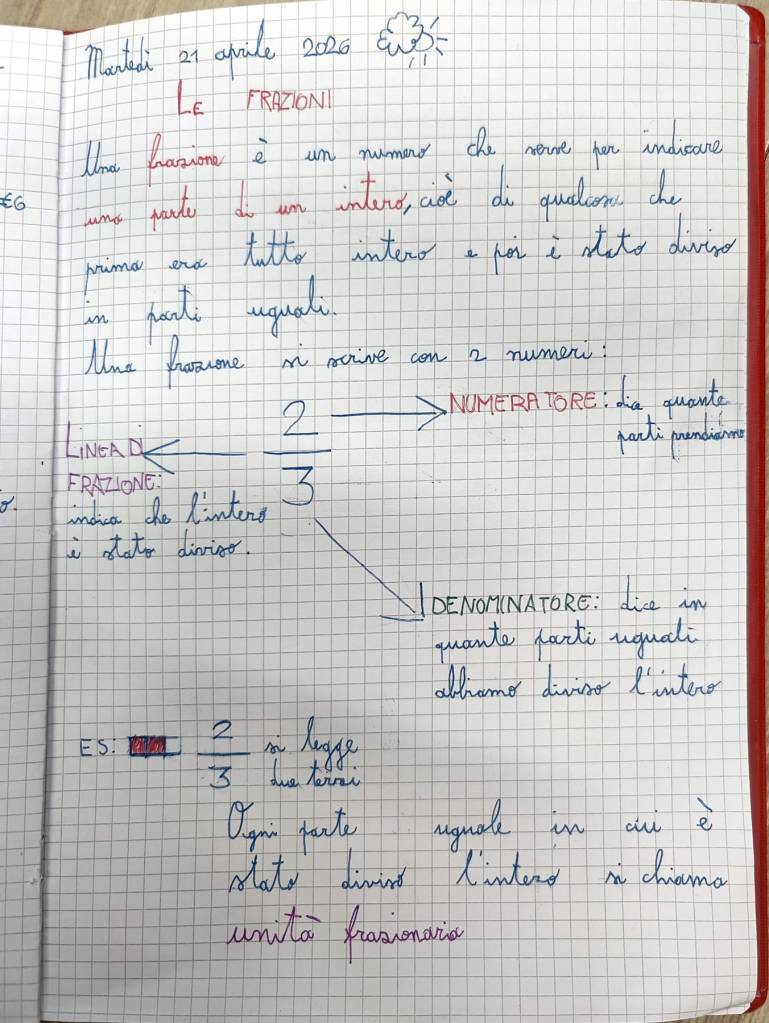 Martedì 21 aprile 2026
LE FRAZIONI
Una frazione è un numero che serve per indicare
una parte di un intero, cioè di qualcosa che
prima era tutto intero e poi è stato diviso
in parti uguali.
Una frazione si scrive con 2 numeri:
2
3
NUMERATORE: dice quante
parti prendiamo
LINEA DI
FRAZIONE:
indica che l'intero
è stato diviso.
DENOMINATORE: dice in
quante parti uguali
abbiamo diviso l'intero
ES: 2 si legge
3 due terzi
Ogni parte uguale in cui è
stato diviso l'intero si chiama
unità frazionaria
€6
o.